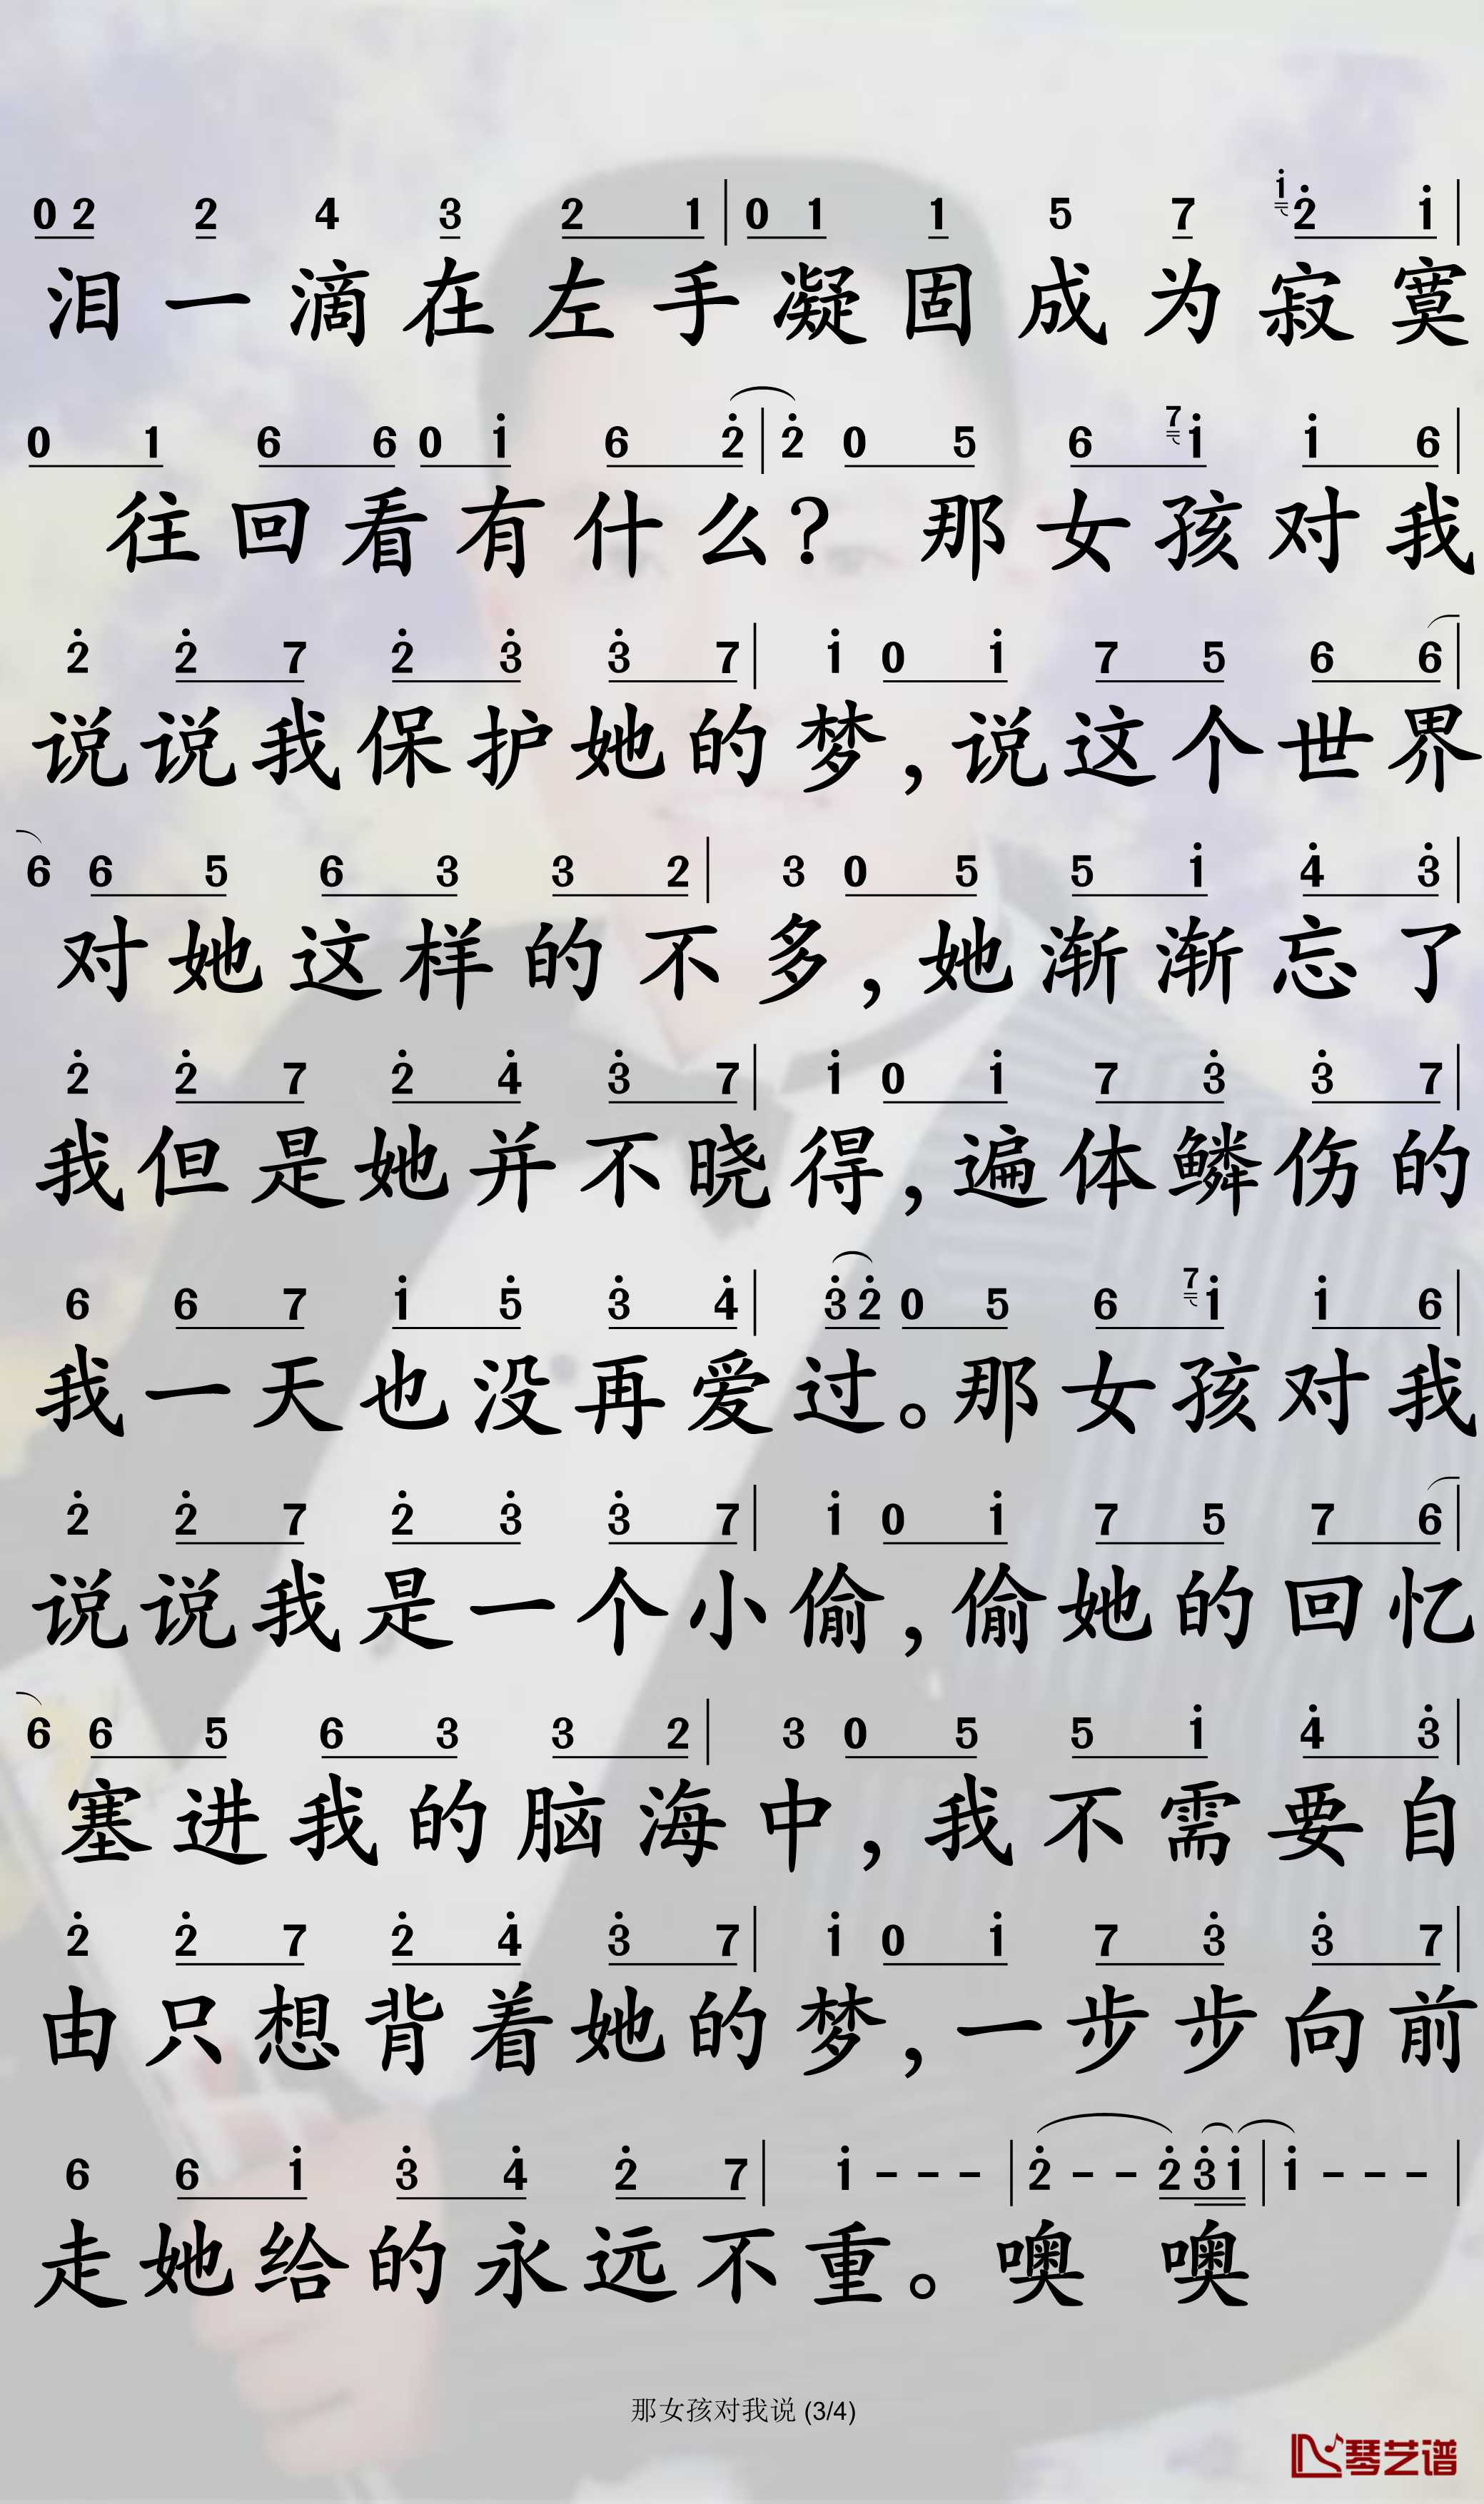 02 2 4 3 2 1|01 1 5 7 1 2̇ 1̇|
泪一滴在左手凝固成为寂寞
0 1 6 6 0 1̇ 6 2̇|2̇ 0 5 6 7 1̇ 1̇ 6|
往回看有什么？那女孩对我
2̇ 2̇ 7 2̇ 3̇ 3̇ 7|1̇ 0 1̇ 7 5 6 6|
说说我保护她的梦，说这个世界
6 6 5 6 3 3 2|3 0 5 5 1̇ 4̇ 3̇|
对她这样的不多，她渐渐忘了
2̇ 2̇ 7 2̇ 4̇ 3̇ 7|1̇ 0 1̇ 7 3̇ 3̇ 7|
我但是她并不晓得，遍体鳞伤的
6 6 7 1̇ 5̇ 3̇ 4̇|3̇ 2̇ 0 5 6 7 1̇ 1̇ 6|
我一天也没再爱过。那女孩对我
2̇ 2̇ 7 2̇ 3̇ 3̇ 7|1̇ 0 1̇ 7 5 7 6|
说说我是一个小偷，偷她的回忆
6 6 5 6 3 3 2|3 0 5 5 1̇ 4̇ 3̇|
塞进我的脑海中，我不需要自
2̇ 2̇ 7 2̇ 4̇ 3̇ 7|1̇ 0 1̇ 7 3̇ 3̇ 7|
由只想背着她的梦，一步步向前
6 6 1̇ 3̇ 4̇ 2̇ 7|1̇ - - -|2̇ - - 2̇ 3̇ 1̇|1̇ - - -|
走她给的永远不重。噢 噢
那女孩对我说 (3/4)
琴艺谱